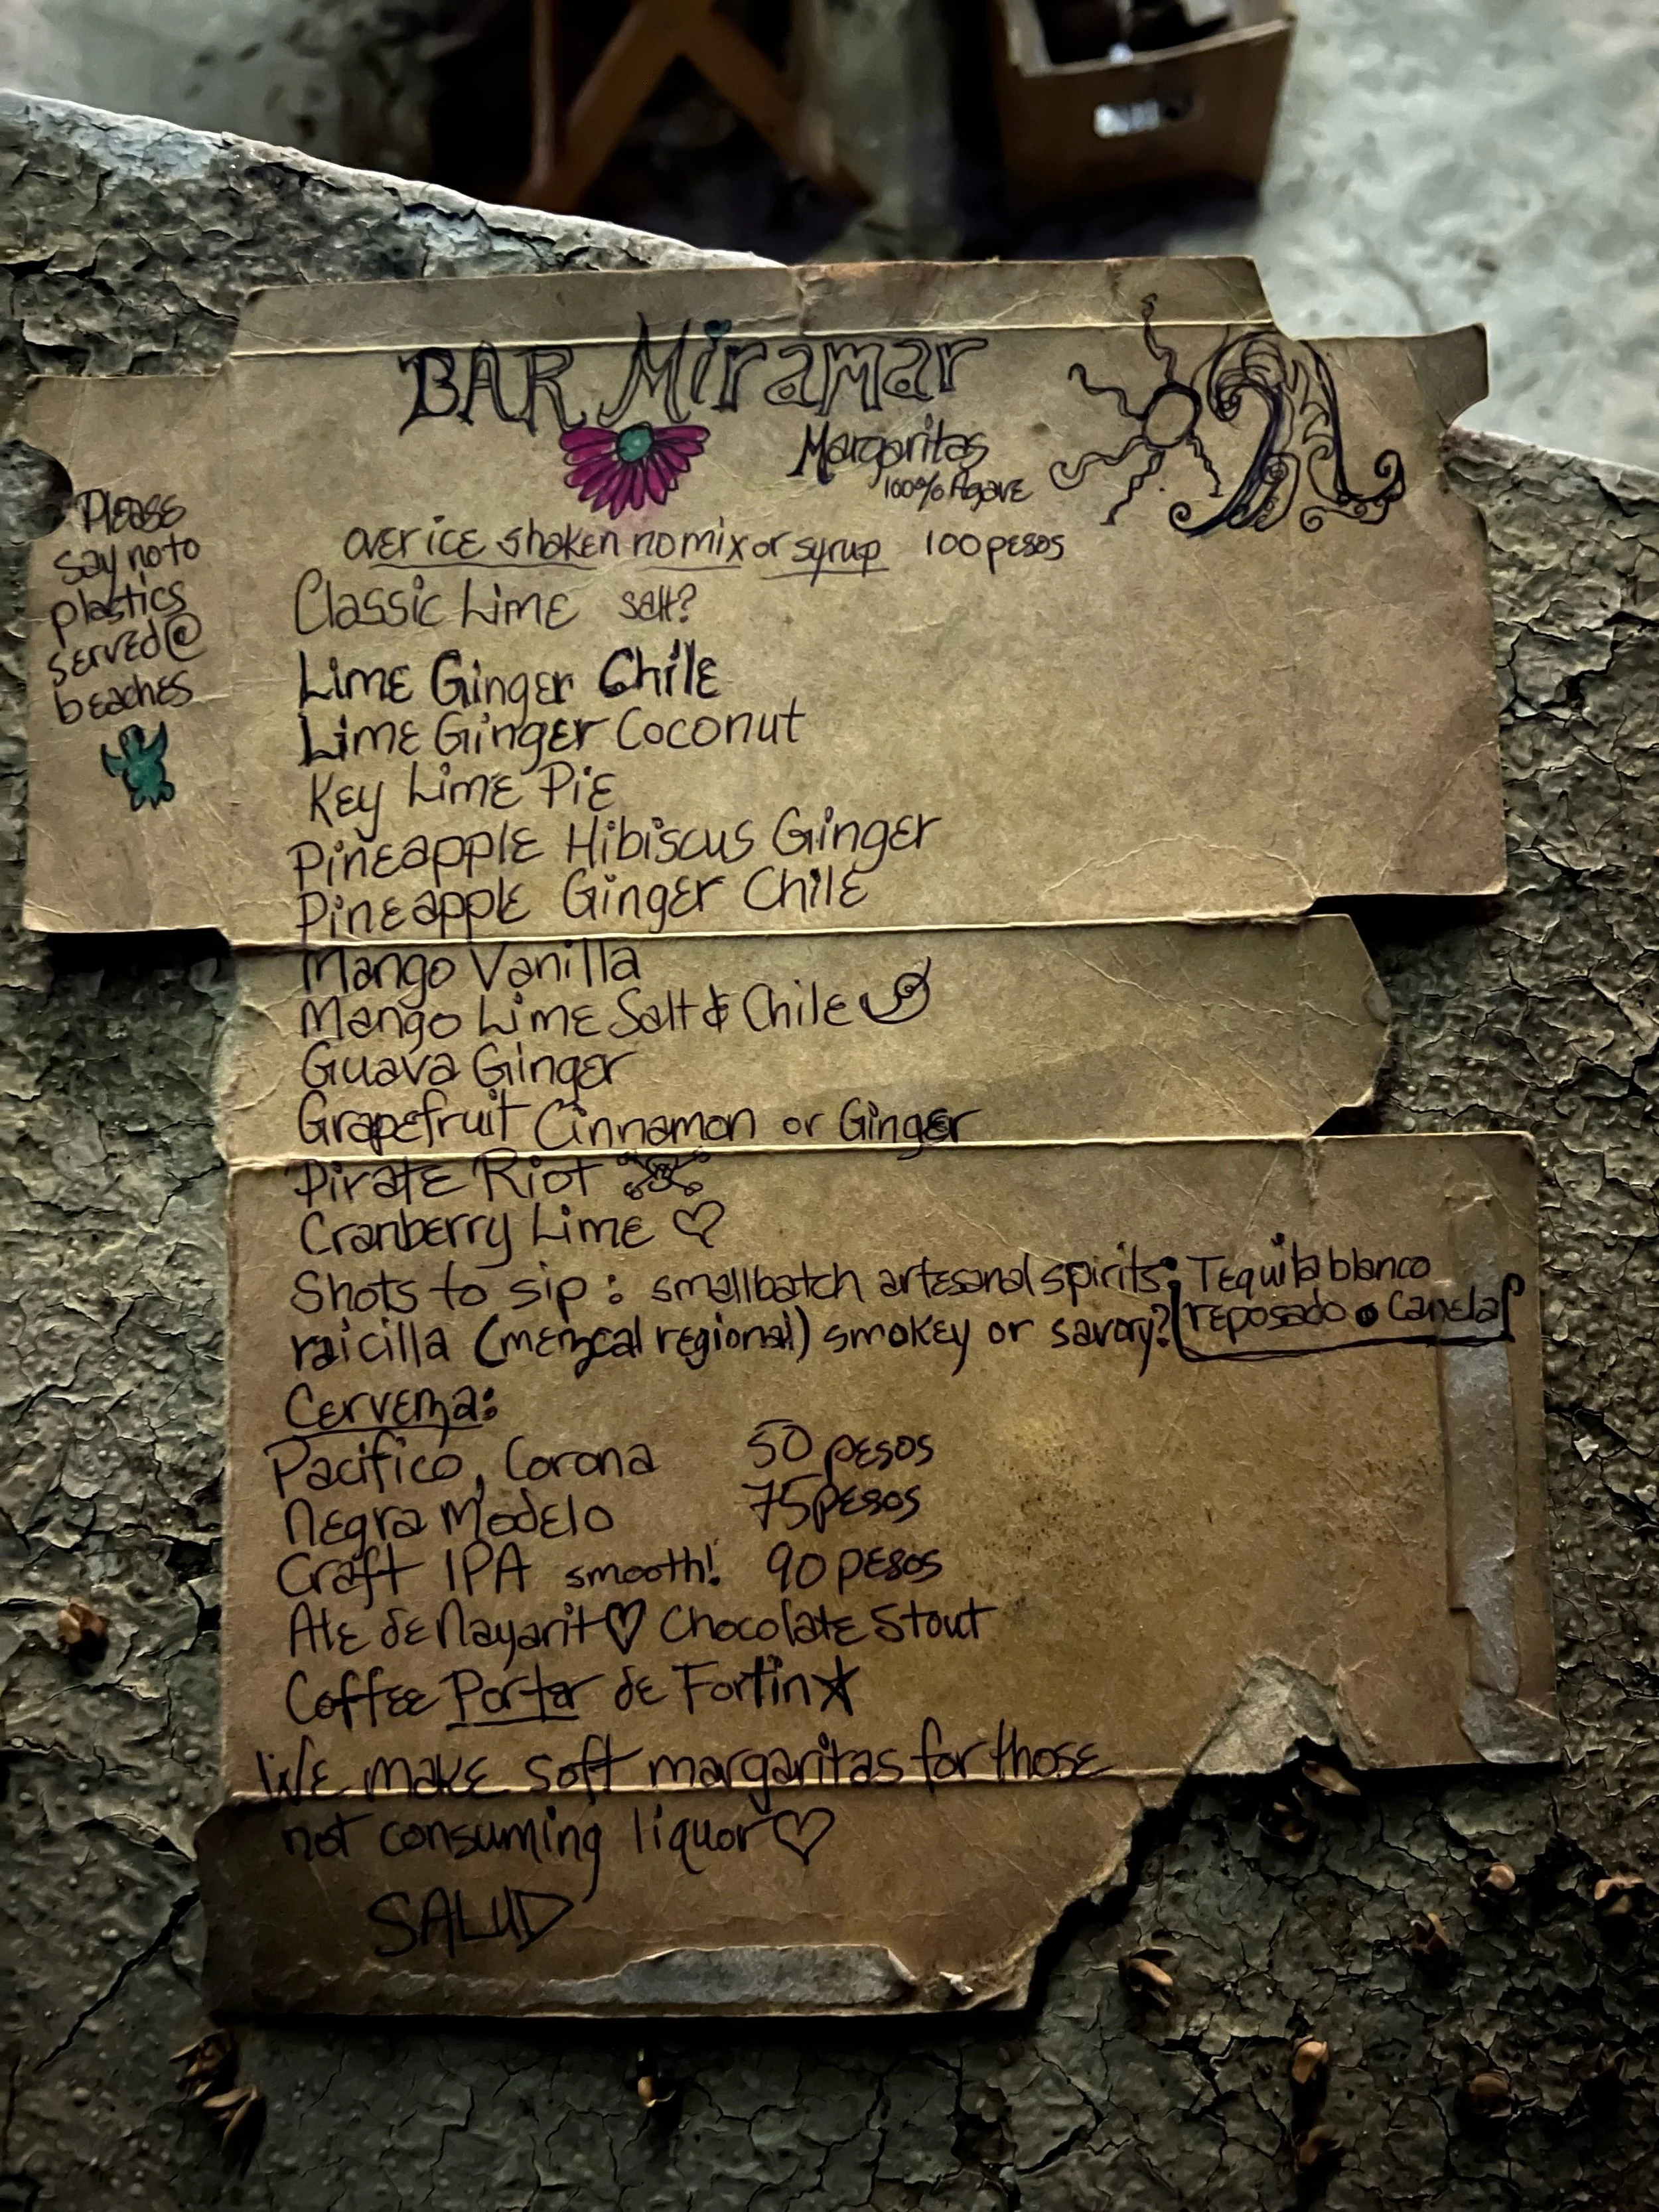 BAR Miramar
Margaritas
100% Agave
over ice shaken no mix or syrup 100 pesos
Classic Lime salt?
Lime Ginger Chile
Lime Ginger Coconut
Key Lime Pie
Pineapple Hibiscus Ginger
Pineapple Ginger Chile
Mango Vanilla
Mango Lime Salt & Chile
Guava Ginger
Grapefruit Cinnamon or Ginger
Pirate Riot
Cranberry Lime
Shots to sip: smallbatch artesanal spirits: Tequila blanco
raicilla (mezcal regional) smokey or savory? reposado • Canela
Cerveza:
Pacifico, Corona 50 pesos
Negra Modelo 75 pesos
Craft IPA smooth! 90 pesos
Ale de Nayarit Chocolate Stout
Coffee Porter de Fortin
We make soft margaritas for those
not consuming liquor
SALUD
Please
say no to
plastics
served @
beaches